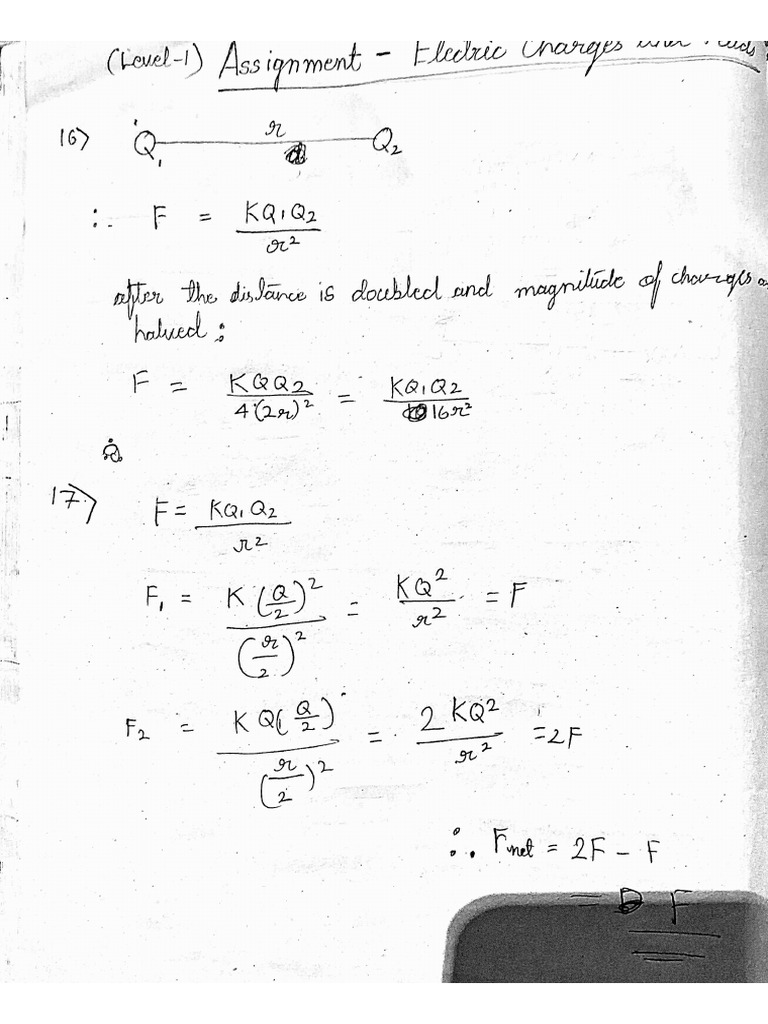 (Level-1) Assignment - Electric Charges and Fields
16) Q₁ r Q₂
∴ F = KQ₁Q₂ / r²
after the distance is doubled and magnitude of charges
halved :
F = KQQ₂ / 4(2r)² = KQ₁Q₂ / 16r²
17) F = KQ₁Q₂ / r²
F₁ = K(Q/2)² / (r/2)² = KQ² / r² = F
F₂ = KQ(Q/2) / (r/2)² = 2KQ² / r² = 2F
∴ Fnet = 2F - F
= F